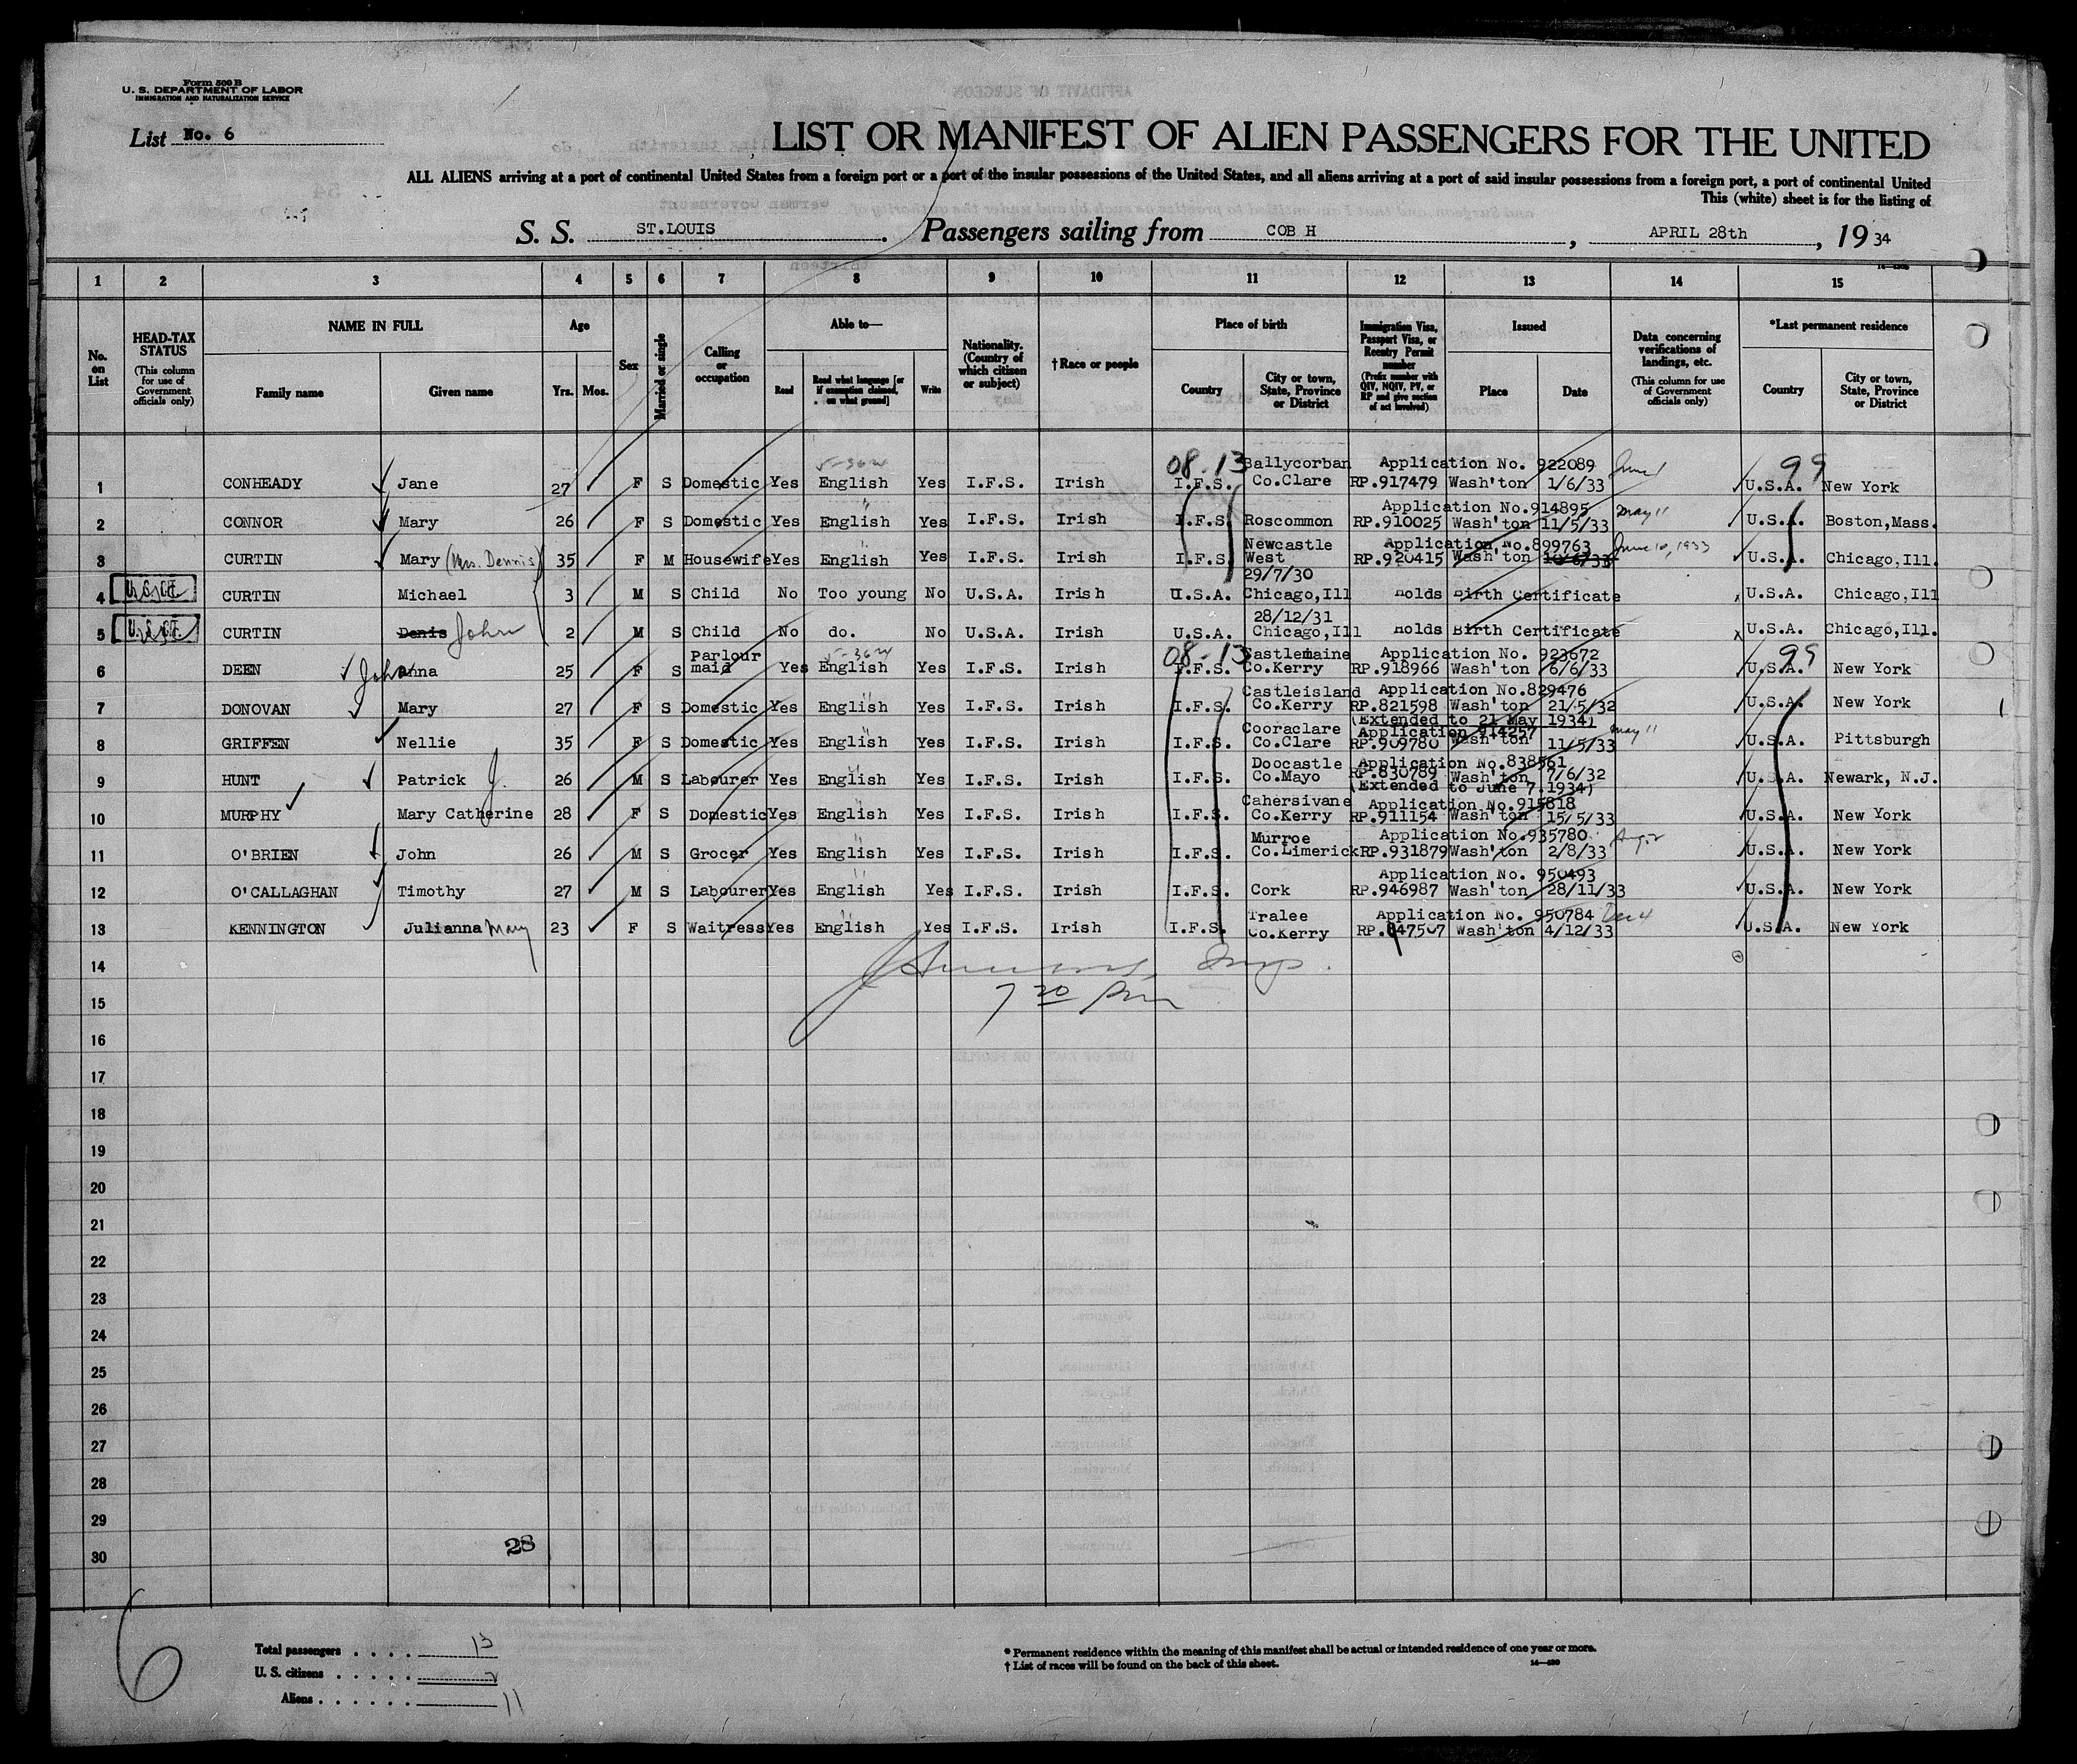 Form 500 B
U. S. DEPARTMENT OF LABOR
IMMIGRATION AND NATURALIZATION SERVICE
List No. 6
LIST OR MANIFEST OF ALIEN PASSENGERS FOR THE UNITED
ALL ALIENS arriving at a port of continental United States from a foreign port or a port of the insular possessions of the United States, and all aliens arriving at a port of said insular possessions from a foreign port, a port of continental United
This (white) sheet is for the listing of
S. S. ST.LOUIS. Passengers sailing from COB H, APRIL 28th, 19 34
1 2 3 4 5 6 7 8 9 10 11 12 13 14 15
No. on List
HEAD-TAX STATUS (This column for use of Government officials only)
NAME IN FULL Family name Given name
Age Yrs. Mos.
Sex
Married or single
Calling or occupation
Able to— Read Read what language [or if exemption claimed, on what ground] Write
Nationality. (Country of which citizen or subject)
† Race or people
Place of birth Country City or town, State, Province or District
Immigration Visa, Passport Visa, or Reentry Permit number (Prefix number with QIV, NQIV, PV, or RP and give section of act involved)
Issued Place Date
Data concerning verifications of landings, etc. (This column for use of Government officials only)
*Last permanent residence Country City or town, State, Province or District
08-13 Ballycorban Application No. 922089 June 1 99
1 CONHEADY Jane 27 F S Domestic Yes English Yes I.F.S. Irish I.F.S. Co.Clare RP.917479 Wash'ton 1/6/33 U.S.A. New York
Application No.914895 May 11
2 CONNOR Mary 26 F S Domestic Yes English Yes I.F.S. Irish I.F.S. Roscommon RP.910025 Wash'ton 11/5/33 U.S.A. Boston,Mass.
Newcastle Application No.899763 June 10, 1933
3 CURTIN Mary (Mrs. Dennis) 35 F M Housewife Yes English Yes I.F.S. Irish I.F.S. West RP.920415 Wash'ton 10/6/33 U.S.A. Chicago,Ill.
29/7/30
4 CURTIN Michael 3 M S Child No Too young No U.S.A. Irish U.S.A. Chicago,Ill Holds Birth Certificate U.S.A. Chicago,Ill
28/12/31
5 CURTIN Denis John 2 M S Child No do. No U.S.A. Irish U.S.A. Chicago,Ill Holds Birth Certificate U.S.A. Chicago,Ill.
Parlour 08-13 Castlemaine Application No. 923672 99
6 DEEN Anna 25 F S maid Yes English Yes I.F.S. Irish I.F.S. Co.Kerry RP.918966 Wash'ton 6/6/33 U.S.A. New York
Castleisland Application No.829476
7 DONOVAN Mary 27 F S Domestic Yes English Yes I.F.S. Irish I.F.S. Co.Kerry RP.821598 Wash'ton 21/5/32 U.S.A. New York
(Extended to 21 May 1934)
Cooraclare Application 914257 May 11
8 GRIFFEN Nellie 35 F S Domestic Yes English Yes I.F.S. Irish I.F.S. Co.Clare RP.909780 Wash'ton 11/5/33 U.S.A. Pittsburgh
Doocastle Application No.838561
9 HUNT Patrick J. 26 M S Labourer Yes English Yes I.F.S. Irish I.F.S. Co.Mayo RP.830789 Wash'ton 7/6/32 U.S.A. Newark, N.J.
(Extended to June 7.1934)
Cahersivane Application No.915818
10 MURPHY Mary Catherine 28 F S Domestic Yes English Yes I.F.S. Irish I.F.S. Co.Kerry RP.911154 Wash'ton 15/5/33 U.S.A. New York
Murroe Application No.935780 Aug. 2
11 O'BRIEN John 26 M S Grocer Yes English Yes I.F.S. Irish I.F.S. Co.Limerick RP.931879 Wash'ton 2/8/33 U.S.A. New York
Application No. 950493
12 O'CALLAGHAN Timothy 27 M S Labourer Yes English Yes I.F.S. Irish I.F.S. Cork RP.946987 Wash'ton 28/11/33 U.S.A. New York
Tralee Application No. 950784 Dec 4
13 KENNINGTON Julianna Mary 23 F S Waitress Yes English Yes I.F.S. Irish I.F.S. Co.Kerry RP.947507 Wash'ton 4/12/33 U.S.A. New York
14
15 7 30 Pm
16
17
18
19
20
21
22
23
24
25
26
27
28
29
28
30
6
Total passengers . . . . 13
U. S. citizens . . . . . 2
Aliens . . . . . . 11
* Permanent residence within the meaning of this manifest shall be actual or intended residence of one year or more.
† List of races will be found on the back of this sheet.